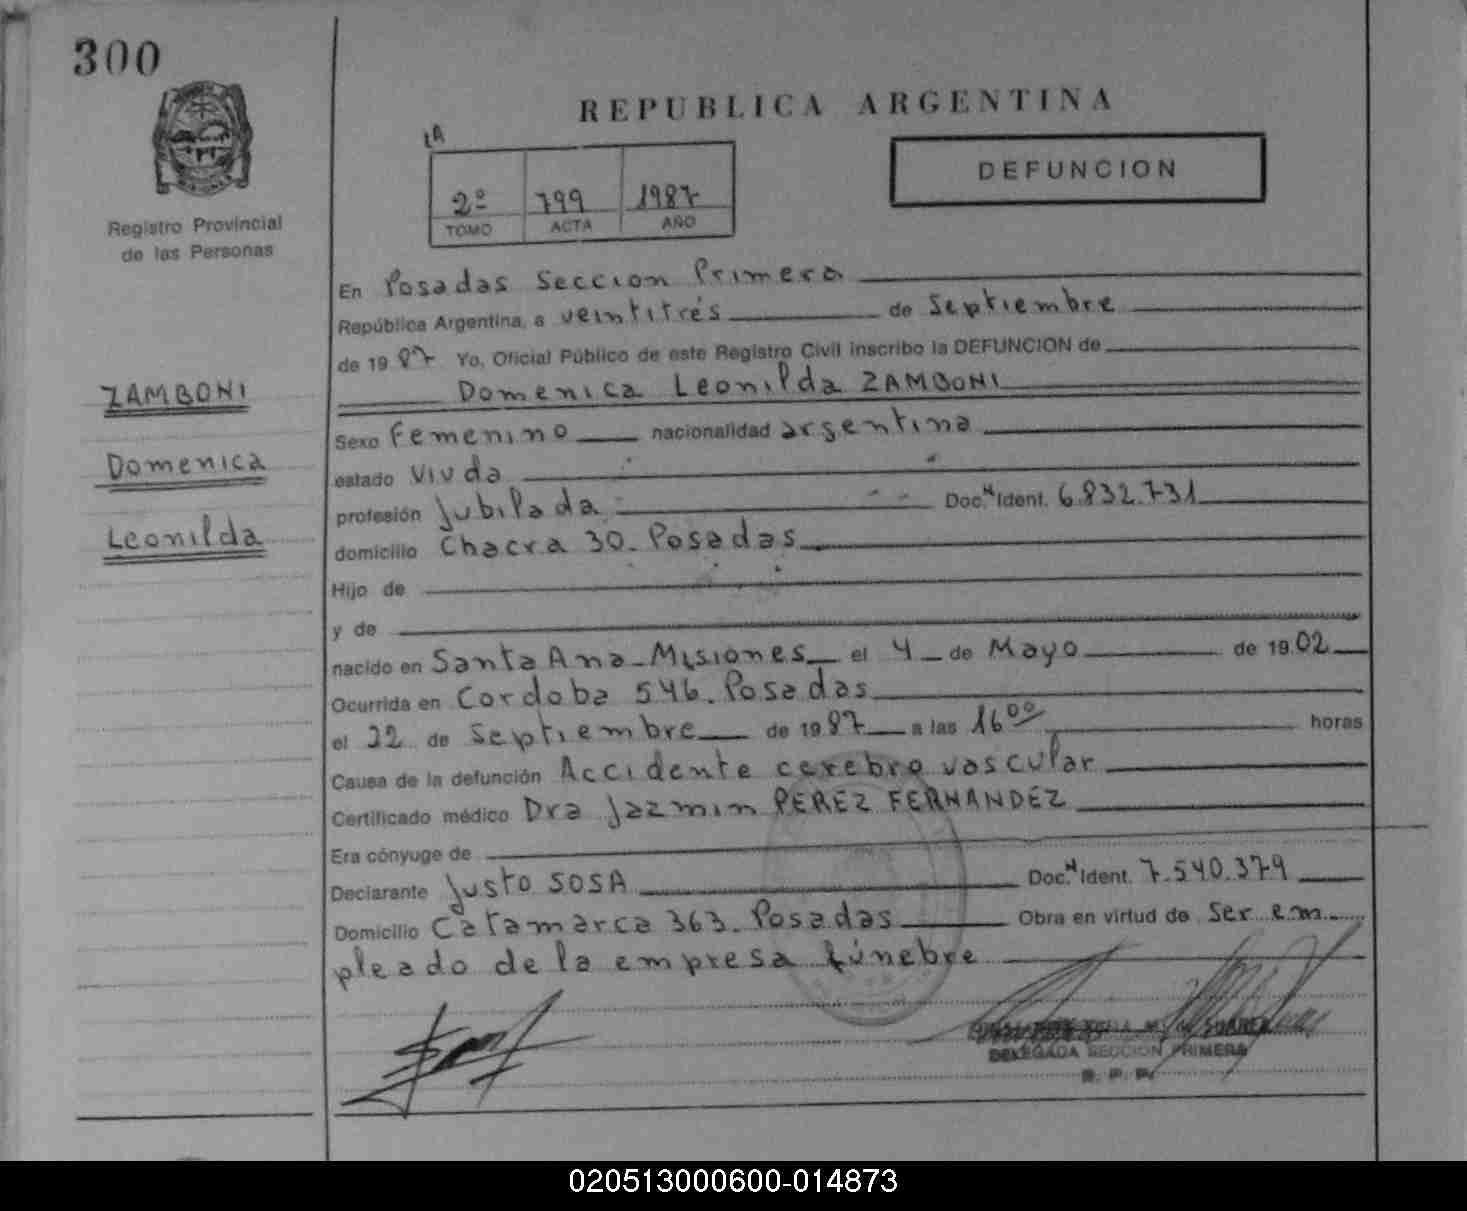 300
REPUBLICA ARGENTINA
1A
DEFUNCION
2º 799 1987
TOMO ACTA AÑO
Registro Provincial
de las Personas
En Posadas Seccion Primera
República Argentina, a veintitrés de Septiembre
de 1987 Yo, Oficial Público de este Registro Civil inscribo la DEFUNCION de
Domenica Leonilda ZAMBONI
ZAMBONI
Domenica
Leonilda
Sexo Femenino nacionalidad argentina
estado Viuda
profesión Jubilada Doc. N Ident. 6.832.731
domicilio Chacra 30. Posadas
Hijo de
y de
nacido en Santa Ana - Misiones el 4 de Mayo de 1902
Ocurrida en Cordoba 546. Posadas
el 22 de Septiembre de 1987 a las 16⁰⁰ horas
Causa de la defunción Accidente cerebro vascular
Certificado médico Dra Jazmin PEREZ FERNANDEZ
Era cónyuge de
Declarante Justo SOSA Doc. N Ident. 7.540.379
Domicilio Catamarca 363. Posadas Obra en virtud de Ser em
pleado de la empresa fúnebre
SUAREZ
DELEGADA SECCION PRIMERA
R. P. P.
020513000600-014873